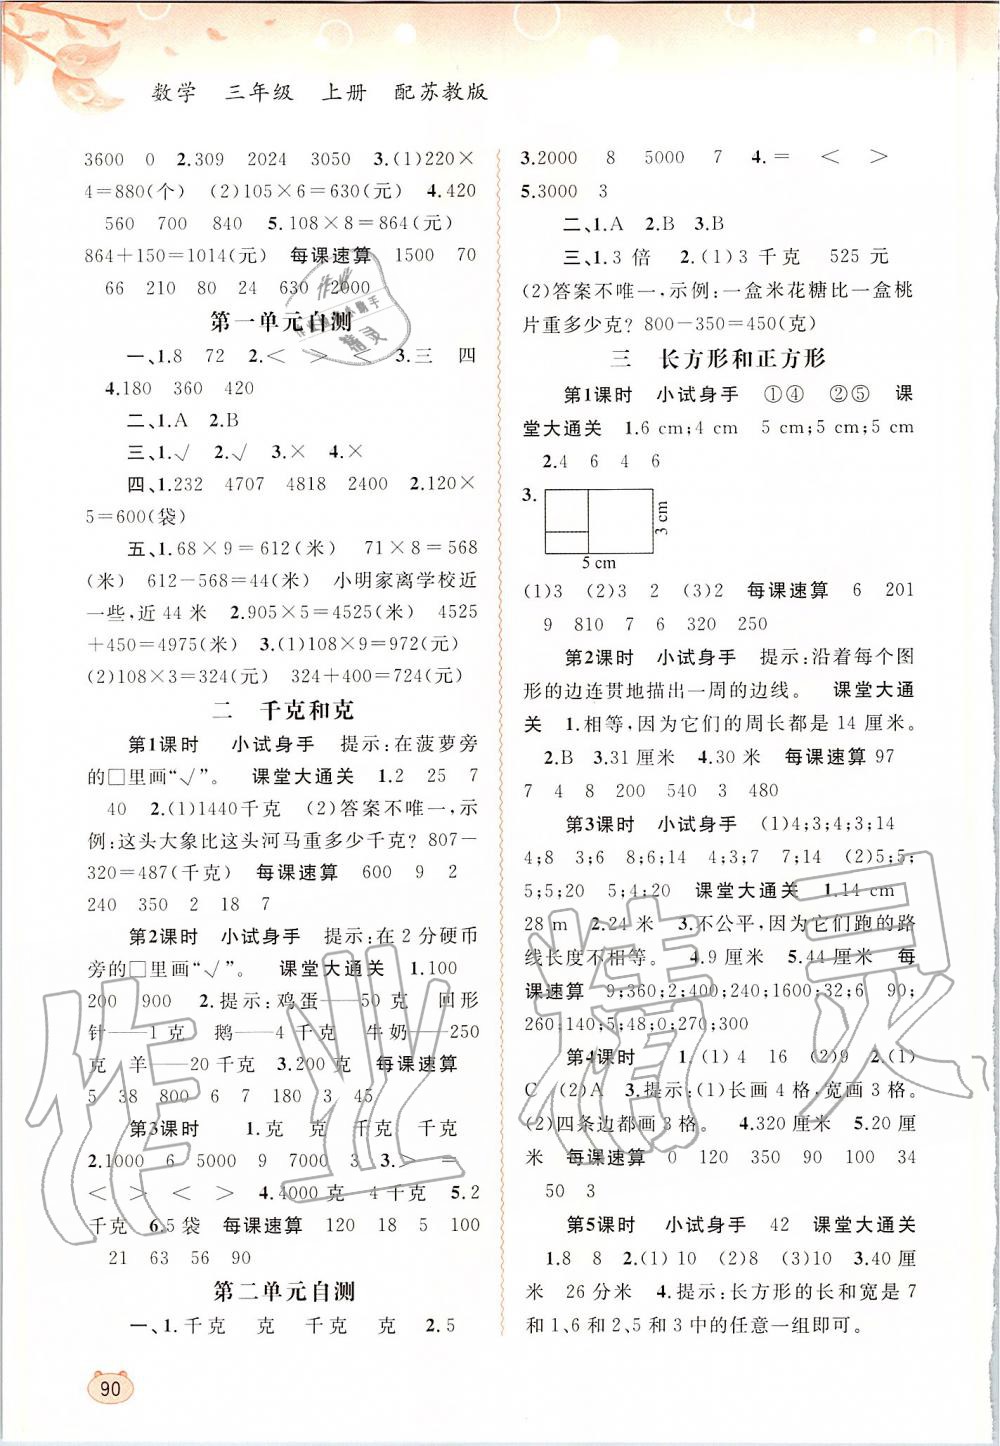 数学 三年级 上册 配苏教版
3600 0 2.309 2024 3050 3.(1)220×
4=880(个) (2)105×6=630(元) 4.420
560 700 840 5.108×8=864(元)
864+150=1014(元) 每课速算 1500 70
66 210 80 24 630 2000
第一单元自测
一、1.8 72 2.< > < 3.三 四
4.180 360 420
二、1.A 2.B
三、1.√ 2.√ 3.× 4.×
四、1.232 4707 4818 2400 2.120×
5=600(袋)
五、1.68×9=612(米) 71×8=568
(米) 612-568=44(米) 小明家离学校近
一些,近 44 米 2.905×5=4525(米) 4525
+450=4975(米) 3.(1)108×9=972(元)
(2)108×3=324(元) 324+400=724(元)
二 千克和克
第1课时 小试身手 提示:在菠萝旁
的□里画“√”。 课堂大通关 1.2 25 7
40 2.(1)1440千克 (2)答案不唯一,示
例:这头大象比这头河马重多少千克? 807-
320=487(千克) 每课速算 600 9 2
240 350 2 18 7
第2课时 小试身手 提示:在 2 分硬币
旁的□里画“√”。 课堂大通关 1.100
200 900 2.提示:鸡蛋——50 克 回形
针——1 克 鹅——4 千克 牛奶——250
克 羊——20 千克 3.200 克 每课速算
5 38 800 6 7 8 3 45
第3课时 1.克 克 千克 千克
2.1000 6 5000 9 7000 3 3.> =
< > < > 4.4000 克 4 千克 5.2
千克 6.5 袋 每课速算 120 18 5 100
21 63 56 90
第二单元自测
一、1.千克 克 千克 克 2.5
3.2000 8 5000 7 4.= < >
5.3000 3
二、1.A 2.B 3.B
三、1.3 倍 2.(1)3 千克 525 元
(2)答案不唯一,示例:一盒米花糖比一盒桃
片重多少克? 800-350=450(克)
三 长方形和正方形
第1课时 小试身手 ①④ ②⑤ 课
堂大通关 1.6 cm;4 cm 5 cm;5 cm;5 cm
2.4 6 4 6
3.
3 cm
5 cm
(1)3 (2)3 2 (3)2 每课速算 6 201
9 810 7 6 320 250
第2课时 小试身手 提示:沿着每个图
形的边连贯地描出一周的边线。 课堂大通
关 1.相等,因为它们的周长都是 14 厘米。
2.B 3.31 厘米 4.8 厘米 每课速算 97
7 4 8 200 540 3 480
第3课时 小试身手 (1)4;3;4;3;14
4;8 3;6 8;6;14 4;3;7 7;14 (2)5;5;
5;5;20 5;4;20 课堂大通关 1.14 cm
28 m 2.24 米 3.不公平,因为它们跑的路
线长度不相等。 4.9 厘米 5.44 厘米 每
课速算 9;360;2;400;240;1600;32;6 90;
260;140;5;48;0;270;300
第4课时 1.(1)4 16 (2)9 2.(1)
C (2)A 3.提示:(1)长画 4 格,宽画 3 格。
(2)四条边都画 3 格。 4.320 厘米 5.20 厘
米 每课速算 0 120 350 90 100 34
50 3
第5课时 小试身手 42 课堂大通关
1.8 8 2.(1)10 (2)8 (3)12 3.40 厘
米 26 分米 4.提示:长方形的长和宽是 7
和 1、6 和 2、5 和 3 中的任意一组即可。
90